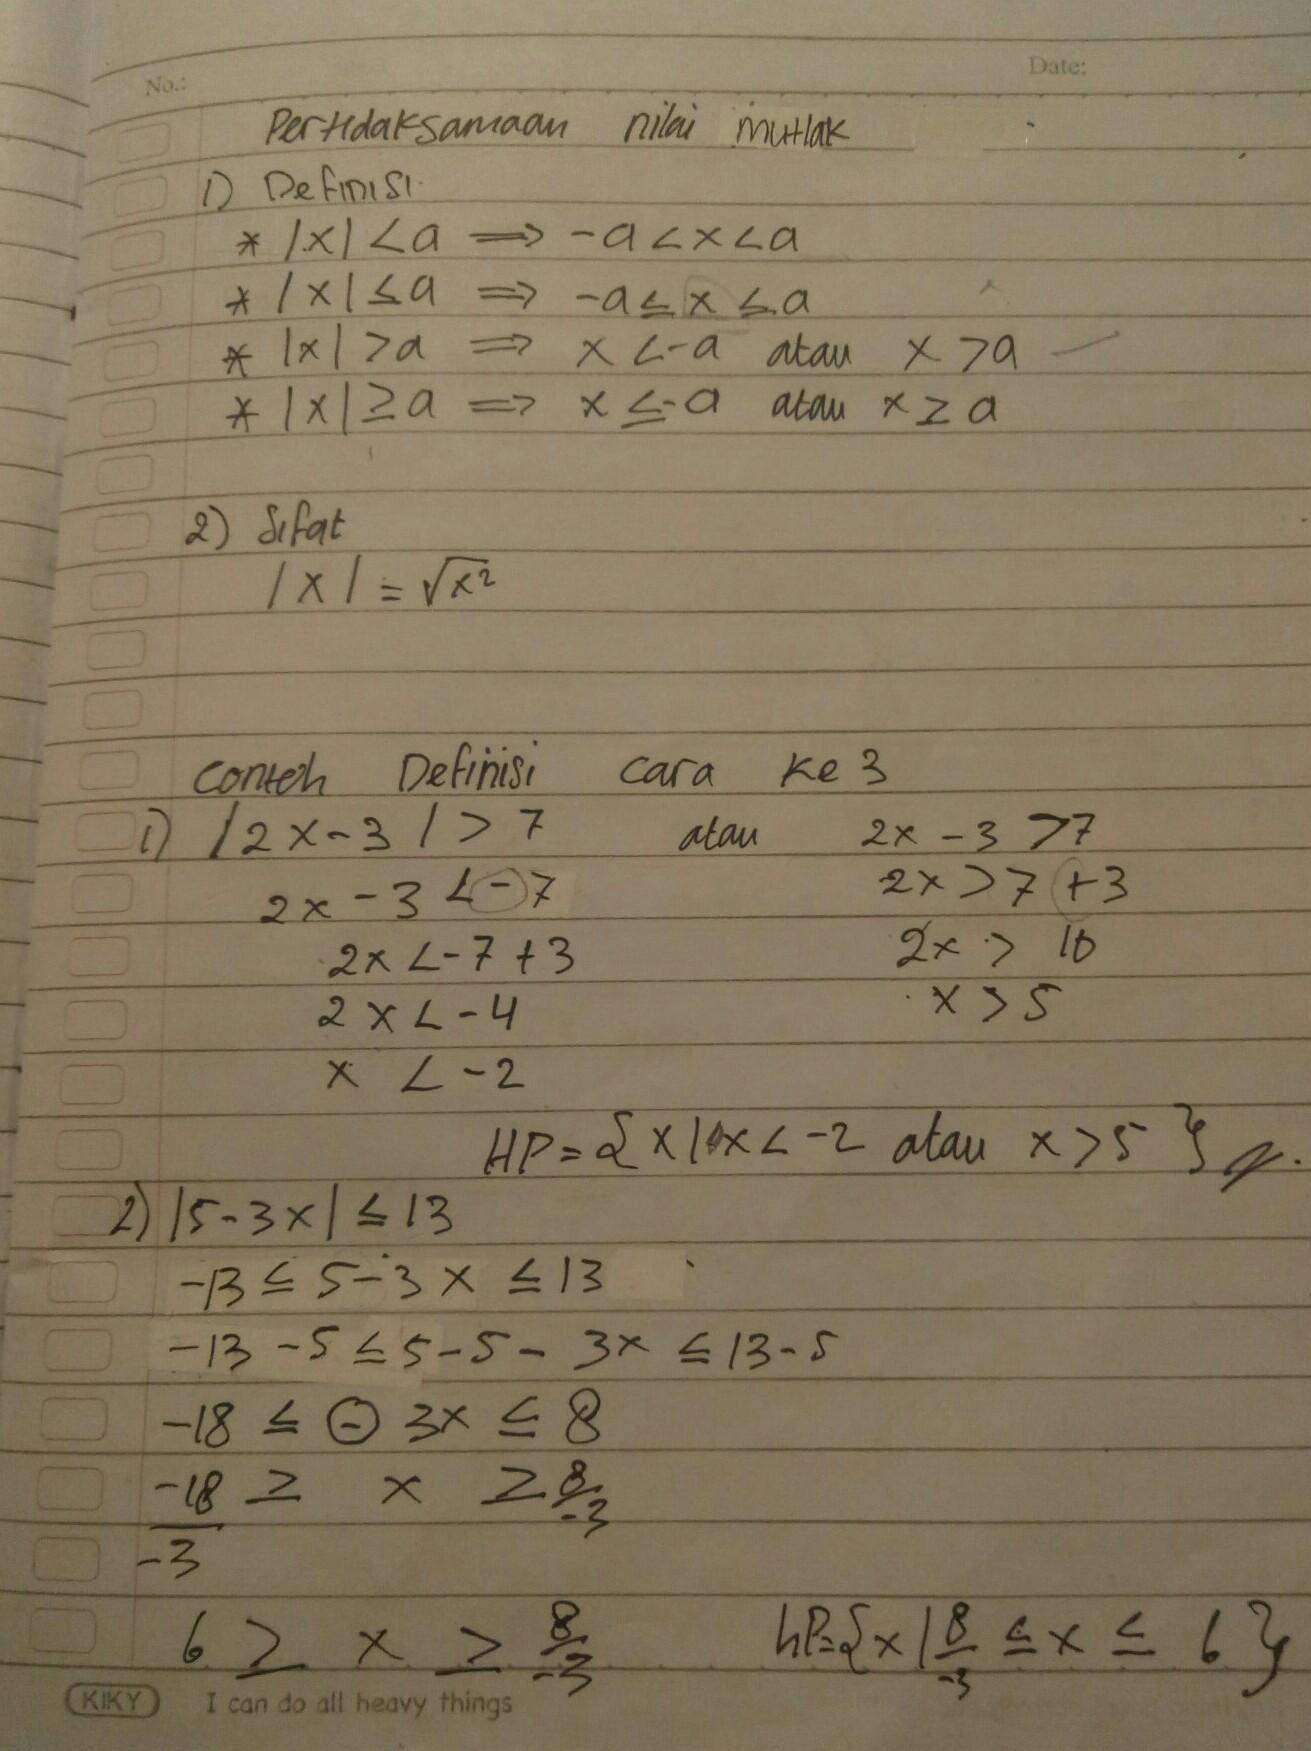 No.:
Date:
Pertidaksamaan nilai mutlak
1) Definisi
* |x| < a ⟹ -a < x < a
* |x| ≤ a ⟹ -a ≤ x ≤ a
* |x| > a ⟹ x < -a atau x > a
* |x| ≥ a ⟹ x ≤ -a atau x ≥ a
2) Sifat
|x| = √x²
Contoh Definisi cara ke 3
1) |2x - 3| > 7 atau 2x - 3 > 7
2x - 3 < -7 2x > 7 + 3
2x < -7 + 3 2x > 10
2x < -4 x > 5
x < -2
HP = {x | x < -2 atau x > 5}
2) |5 - 3x| ≤ 13
-13 ≤ 5 - 3x ≤ 13
-13 - 5 ≤ 5 - 5 - 3x ≤ 13 - 5
-18 ≤ - 3x ≤ 8
-18/-3 ≥ x ≥ 8/-3
6 ≥ x ≥ 8/-3 HP = {x | 8/-3 ≤ x ≤ 6}
KIKY I can do all heavy things